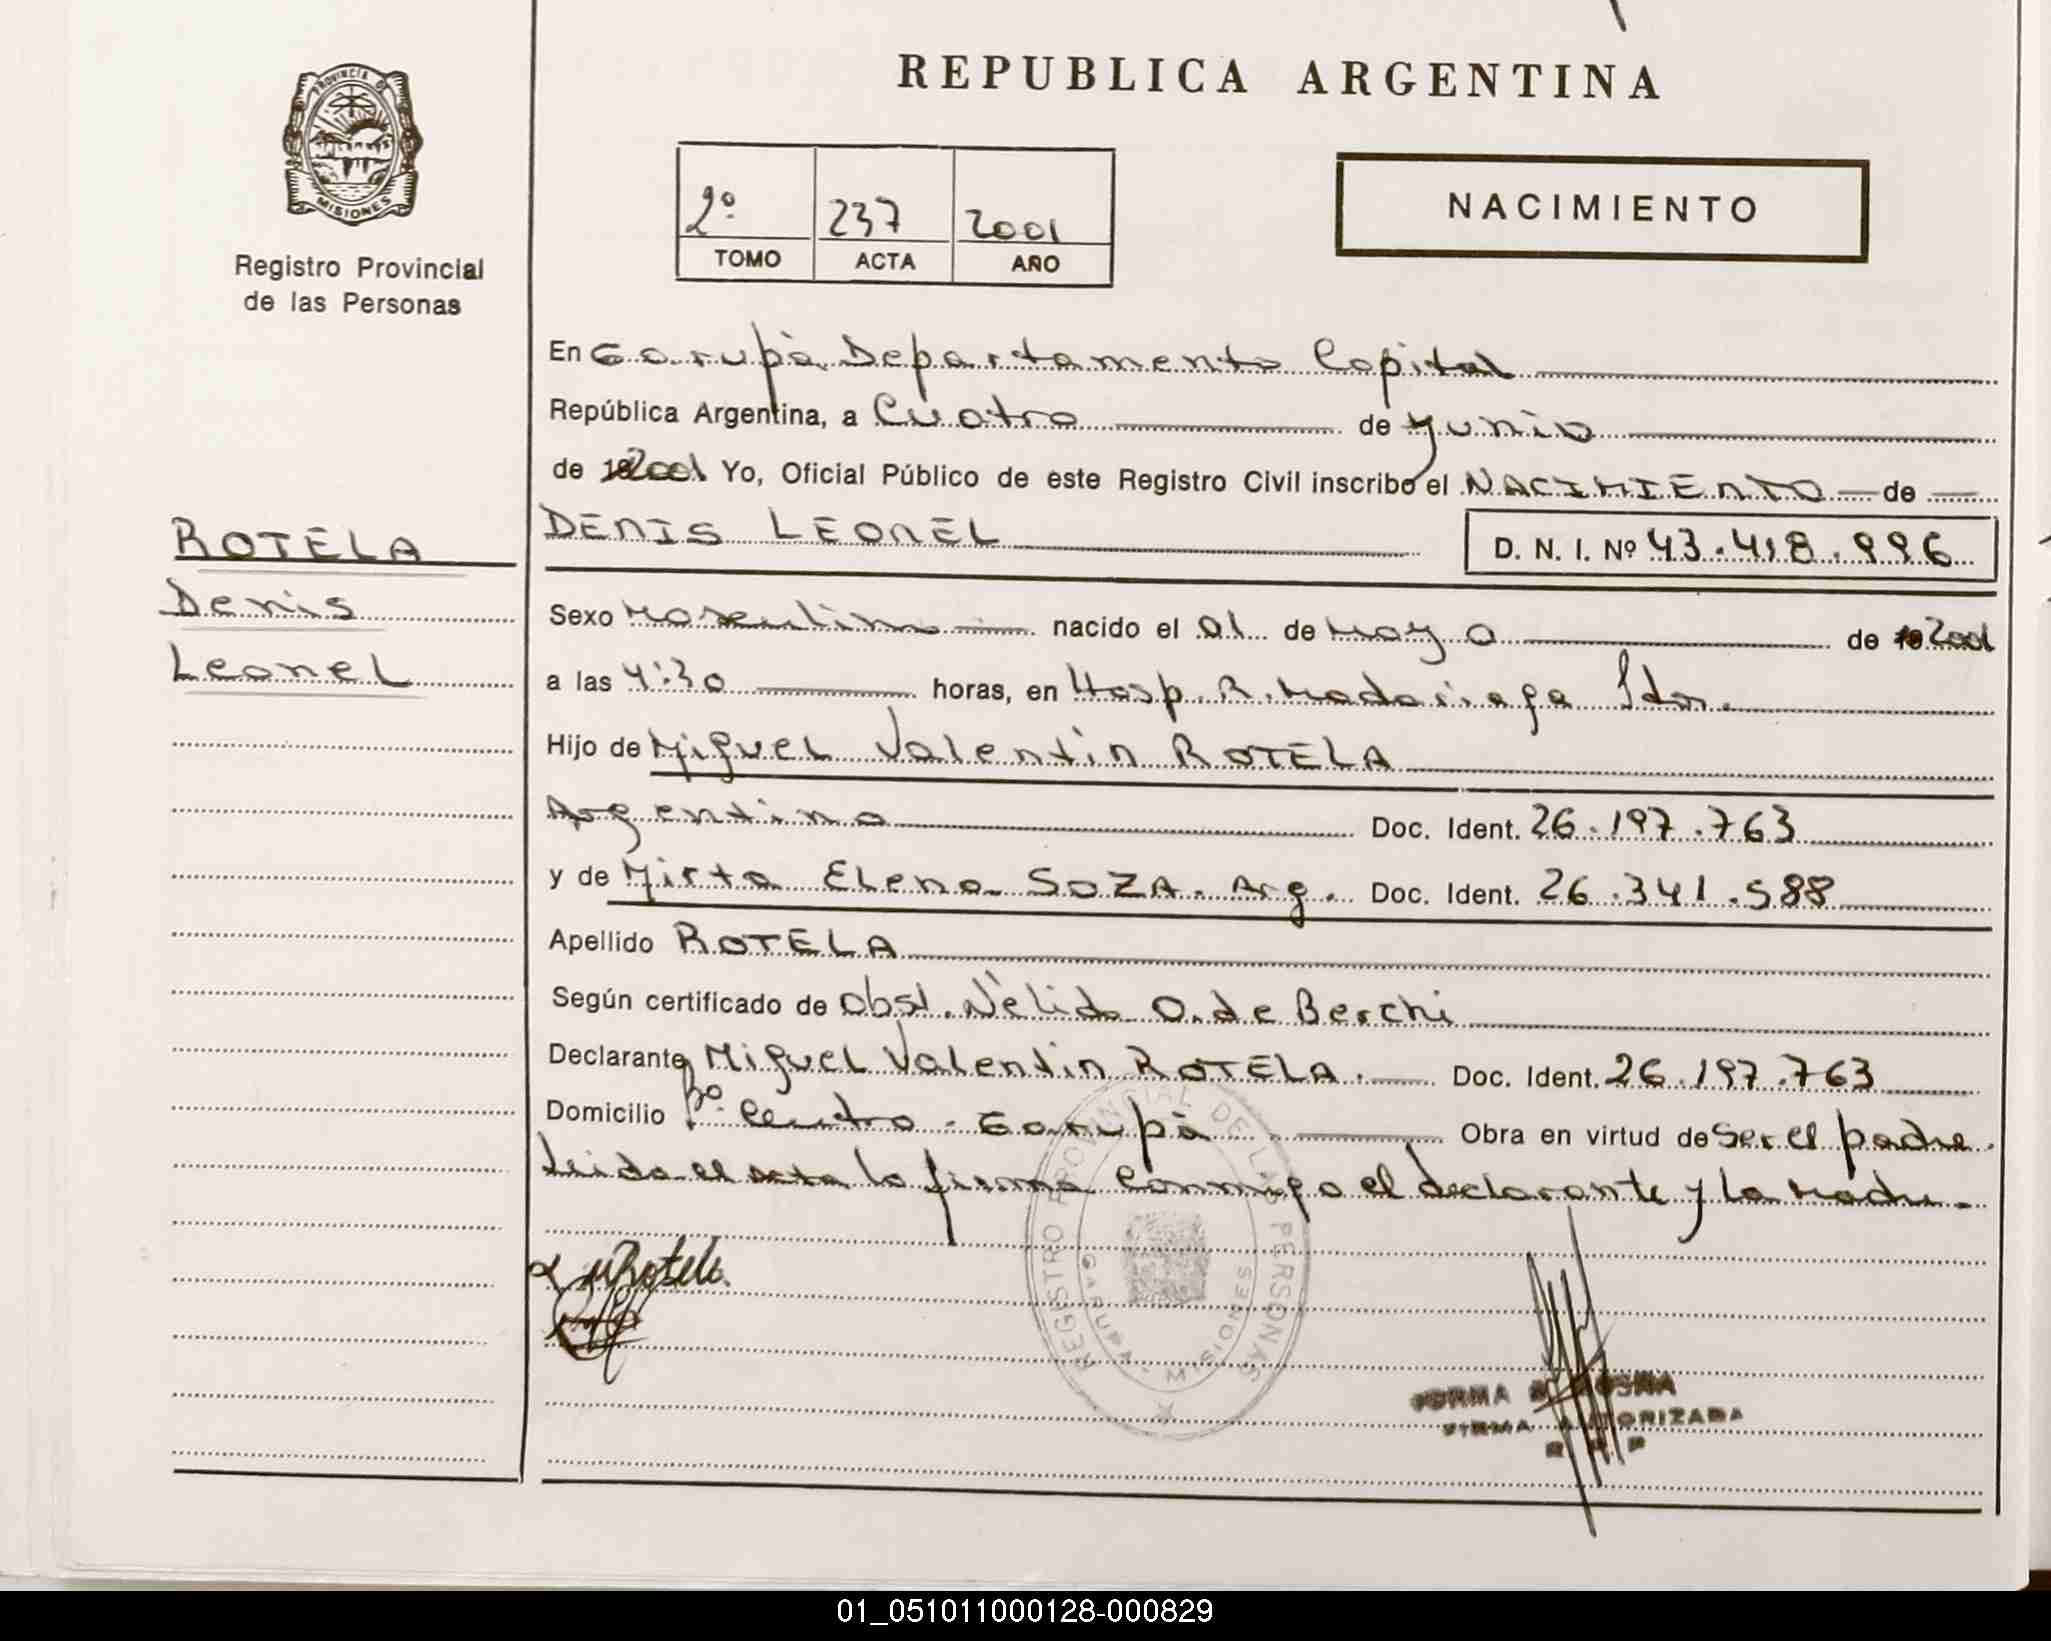 PROVINCIA D
MISIONES
Registro Provincial
de las Personas
REPUBLICA ARGENTINA
2º 237 2001
TOMO ACTA AÑO
NACIMIENTO
En Garupà Departamento Capital
República Argentina, a Cuatro de Junio
de 2001 Yo, Oficial Público de este Registro Civil inscribo el NACIMIENTO de
ROTELA
Denis
Leonel
DENIS LEONEL D. N. I. Nº 43.418.996
Sexo Masculino nacido el 01 de Mayo de 2001
a las 4:30 horas, en Hosp. R. Madariaga Pdas.
Hijo de Miguel Valentin ROTELA
Argentino Doc. Ident. 26.197.763
y de Mirta Elena SOZA. Arg. Doc. Ident. 26.341.588
Apellido ROTELA
Según certificado de Obst. Nèlida O. de Berchi
Declarante Miguel Valentin ROTELA. Doc. Ident. 26.197.763
Domicilio Bº Centro - Garupà Obra en virtud de Ser el padre.
Leida el acta la firma conmigo el declarante y la Madre.
REGISTRO PROVINCIAL DE LAS PERSONAS
GARUPA - MISIONES
FIRMA AUTORIZADA
01_051011000128-000829